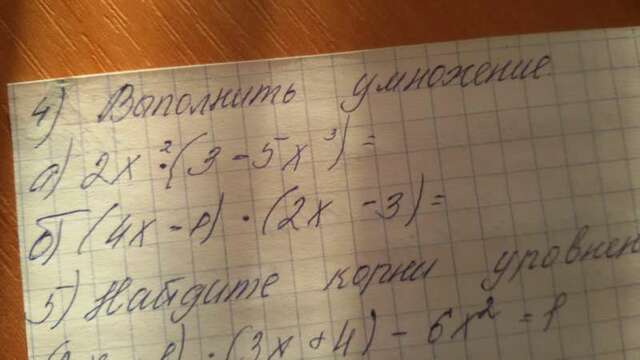 4) Выполнить умножение
а) 2x²·(3-5x³)=
б) (4x-1)·(2x-3)=
5) Найдите корни уровнен
·(3x+4)-6x²=1